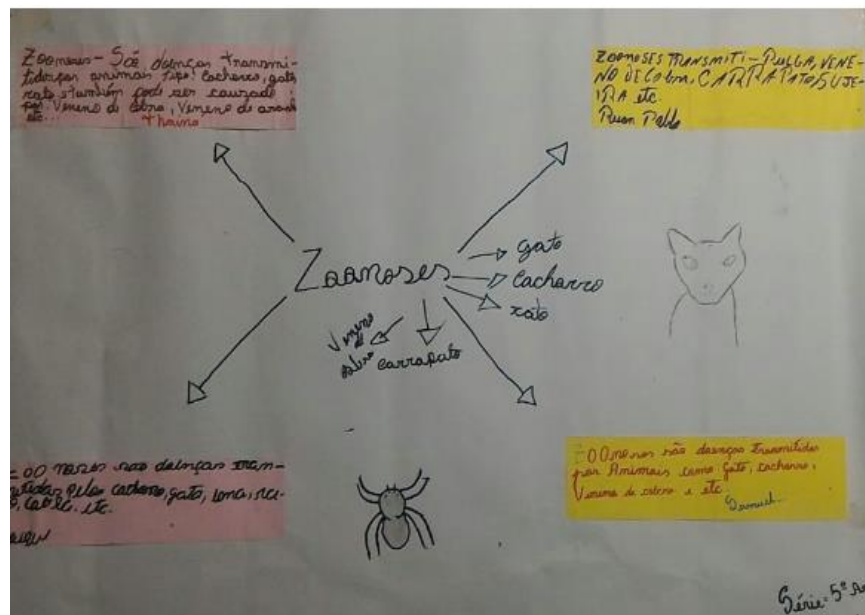 Zoonoses - São doenças transmi-
tidas por animais tipo: Cachorro, gato,
rato, também pode ser causado
por. Veneno de cobra, Veneno de aranha
etc...
ZOONOSES TRANSMITI - PULGA, VENE-
NO DE CObra, CARRAPATO, SUJE-
IRA etc.
Ruan Pablo
Zoonoses
gato
Cachorro
rato
Veneno
de
carrapato
ZOOnoses são doenças tran-
pelo cachorro, gato,
etc.
ZOOnoses são doenças transmitidas
por Animais como Gato, cachorro,
Veneno de e etc.
Samuel
Série: 5º A